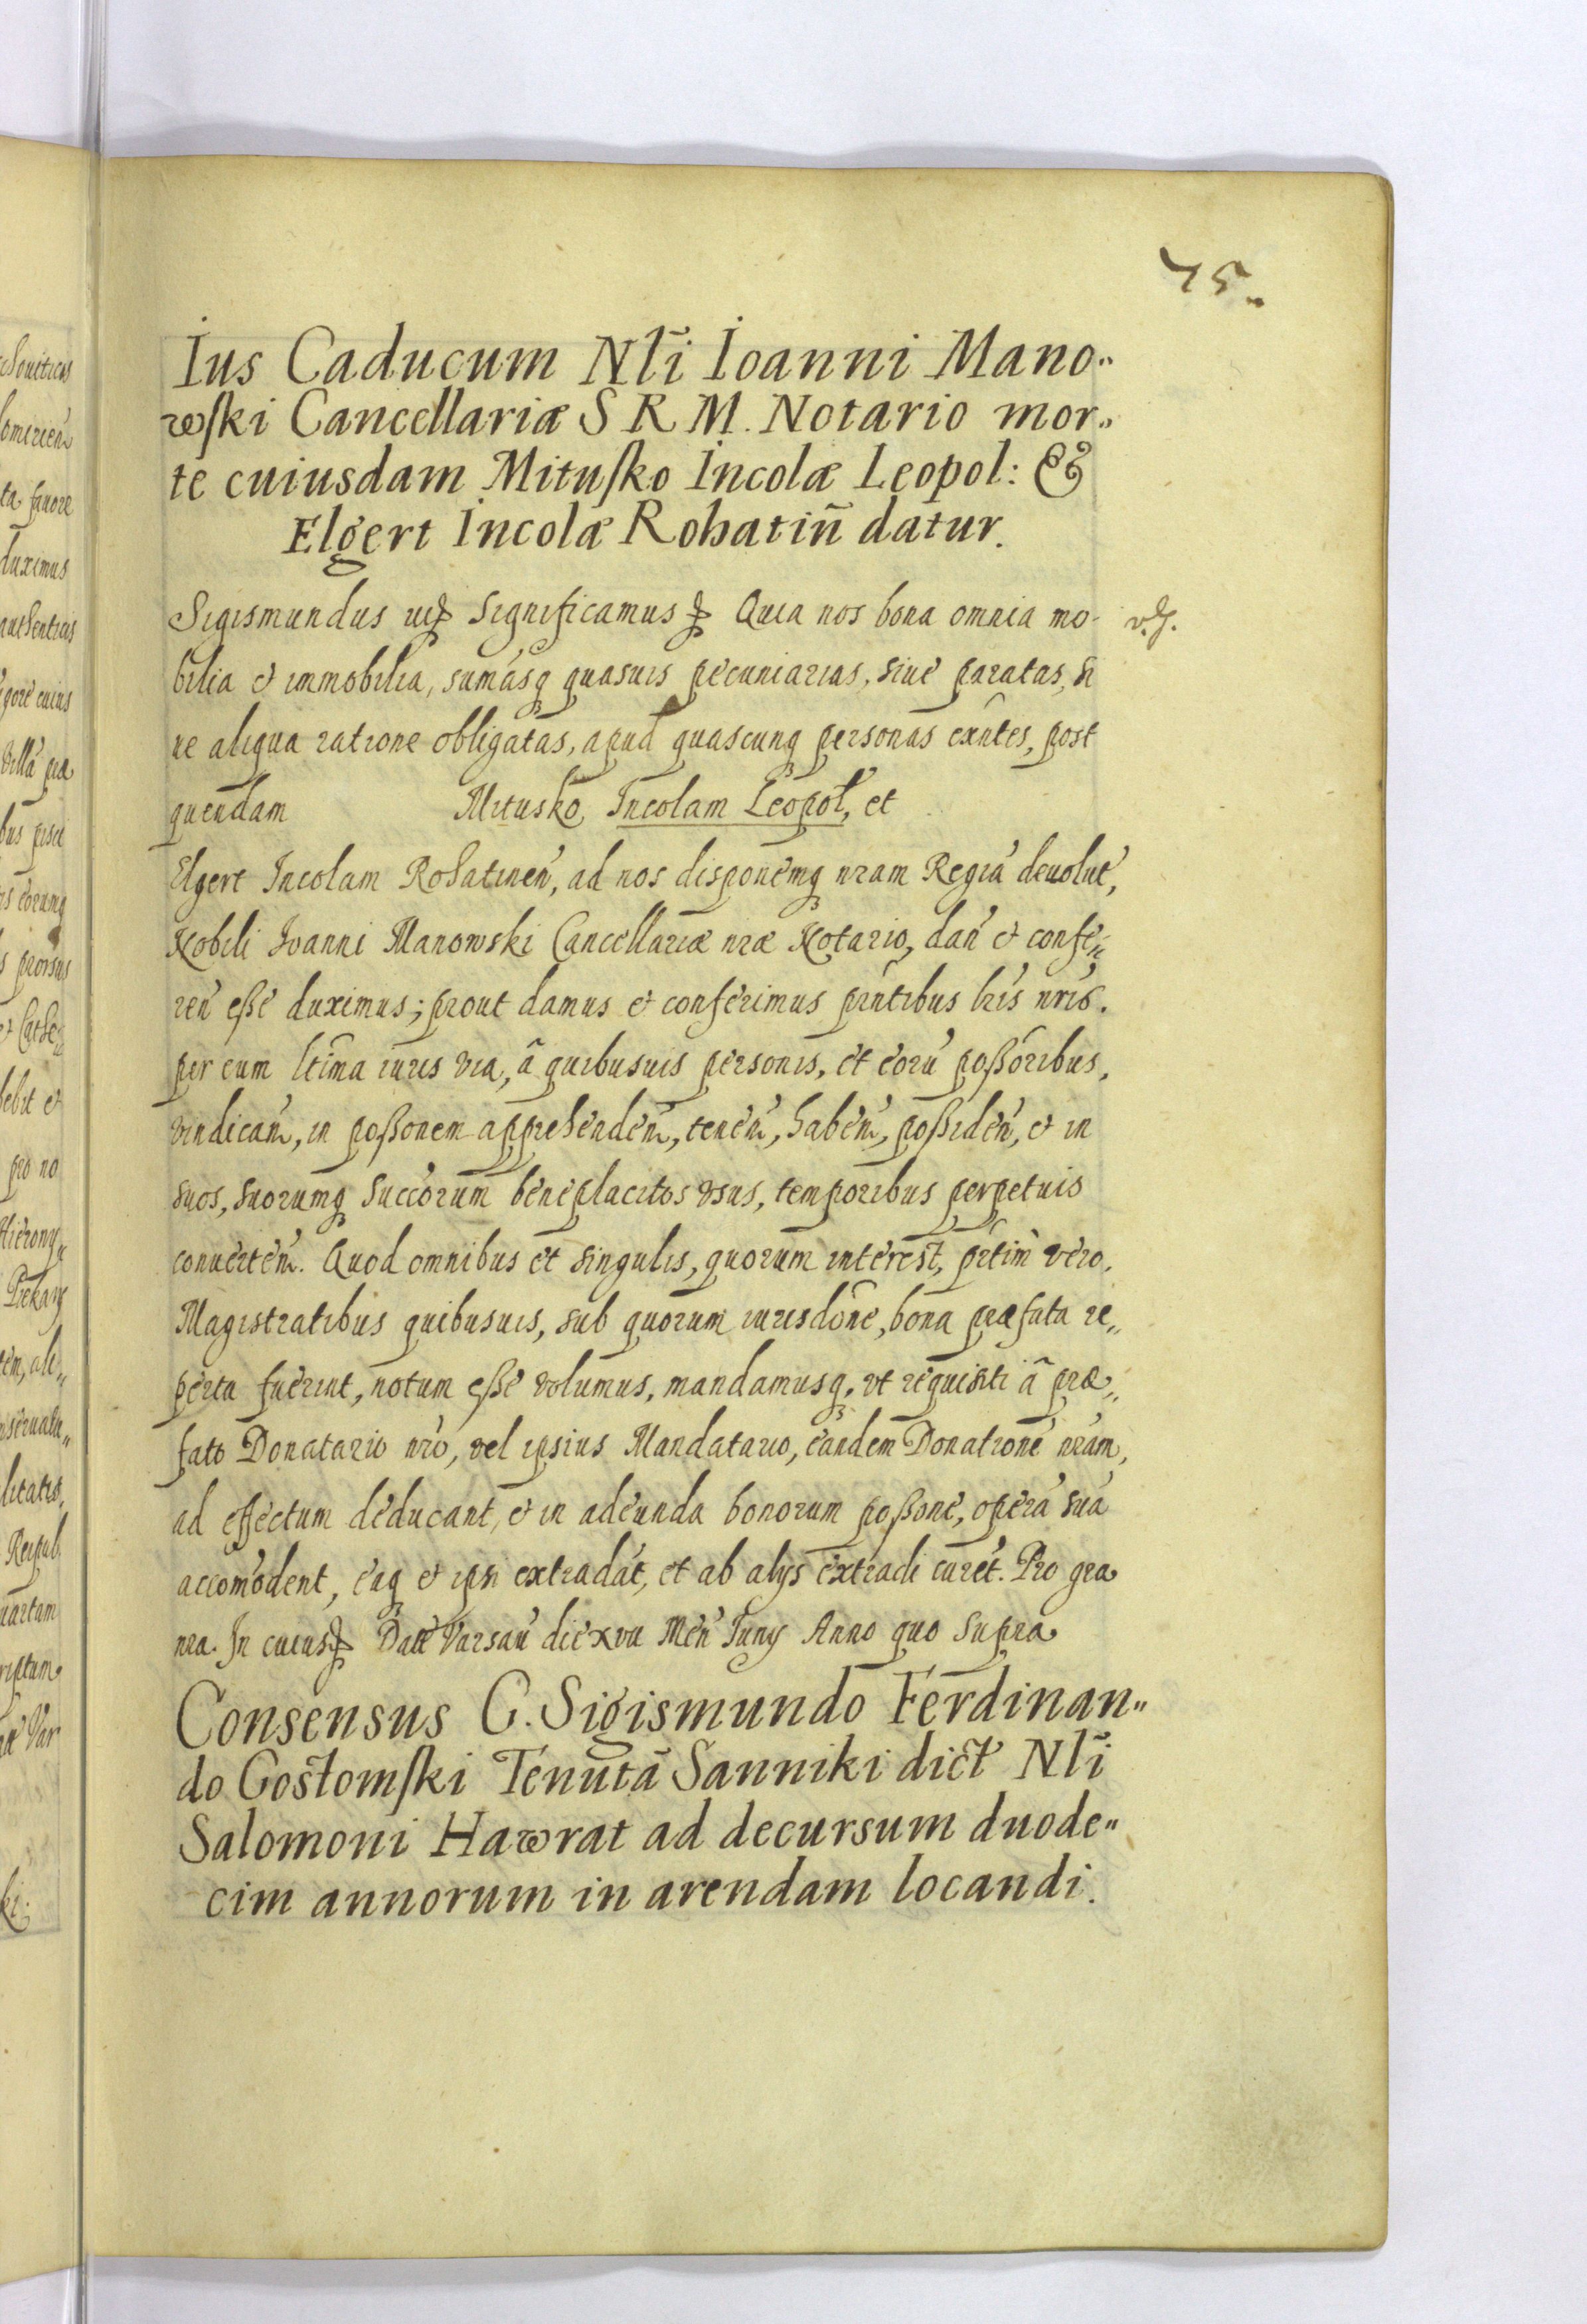 75.
Ius Caducum Nli̅ Ioanni Mano„
wſki Cancellariæ S R M. Notario mor„
te cuiusdam Mituſko Incolæ Leopol: &
Elgert Incolæ Rohatin̄ datur.
Sigismundus etc Significamus etc Quia nos bona omnia mo-
bilia et immobilia, sumasq quasuis pecuniarias, siue paratas, si
ue aliqua ratione obligatas, apud quascunq personas exn̄tes, post
quendam Mitusko, Incolam Leopol, et
Elgert Incolam Rohatinen̄, ad nos dispone̅mq nram Regia̅ deuolut̄,
Nobili Joanni Manowski Cancellariæ nræ Notario, dan̄ et confe„
ren̄ eße duximus; prout damus et conferimus pn̄tibus lris nris.
per eum ltima iuris via, â quibusuis personis, et eoru̅ poßoribus,
vindican̄, in poßonem apprehenden̄, tenen̄, haben̄, poßiden̄, et in
suos, suorumq succorum beneplacitos vsus, temporibus perpetuis
conuerten̄. Quod omnibus et singulis, quorum interest, prtim vero.
Magistratibus quibusuis, sub quorum iurisdone, bona præfata re„
perta fuerint, notum eße volumus, mandamusq, vt requisiti â præ„
fato Donatario nro, vel ipsius Mandatario, eandem Donatione̅ nram,
ad effectum deducant, et in adeunda bonorum poßone, opera̅ sua̅
accomodent, eaq et ipsi extradat̄, et ab alijs extradi curet̄. Pro gra
nra. In cuius etc Datt Varsau̅ die xvii Men̄ Junij Anno quo supra
Consensus G. Sigismundo Ferdinan„
do Gostomſki Tenuta̅ Sanniki dict Nli̅
Salomoni Hawrat ad decursum duode„
cim annorum in arendam locandi.